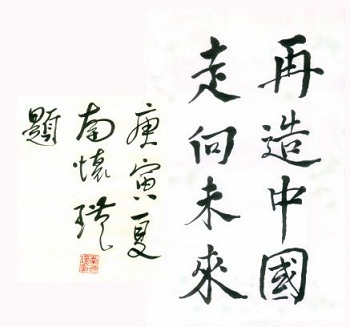 再造中國
走向未來
庚寅夏
南懷瑾
題